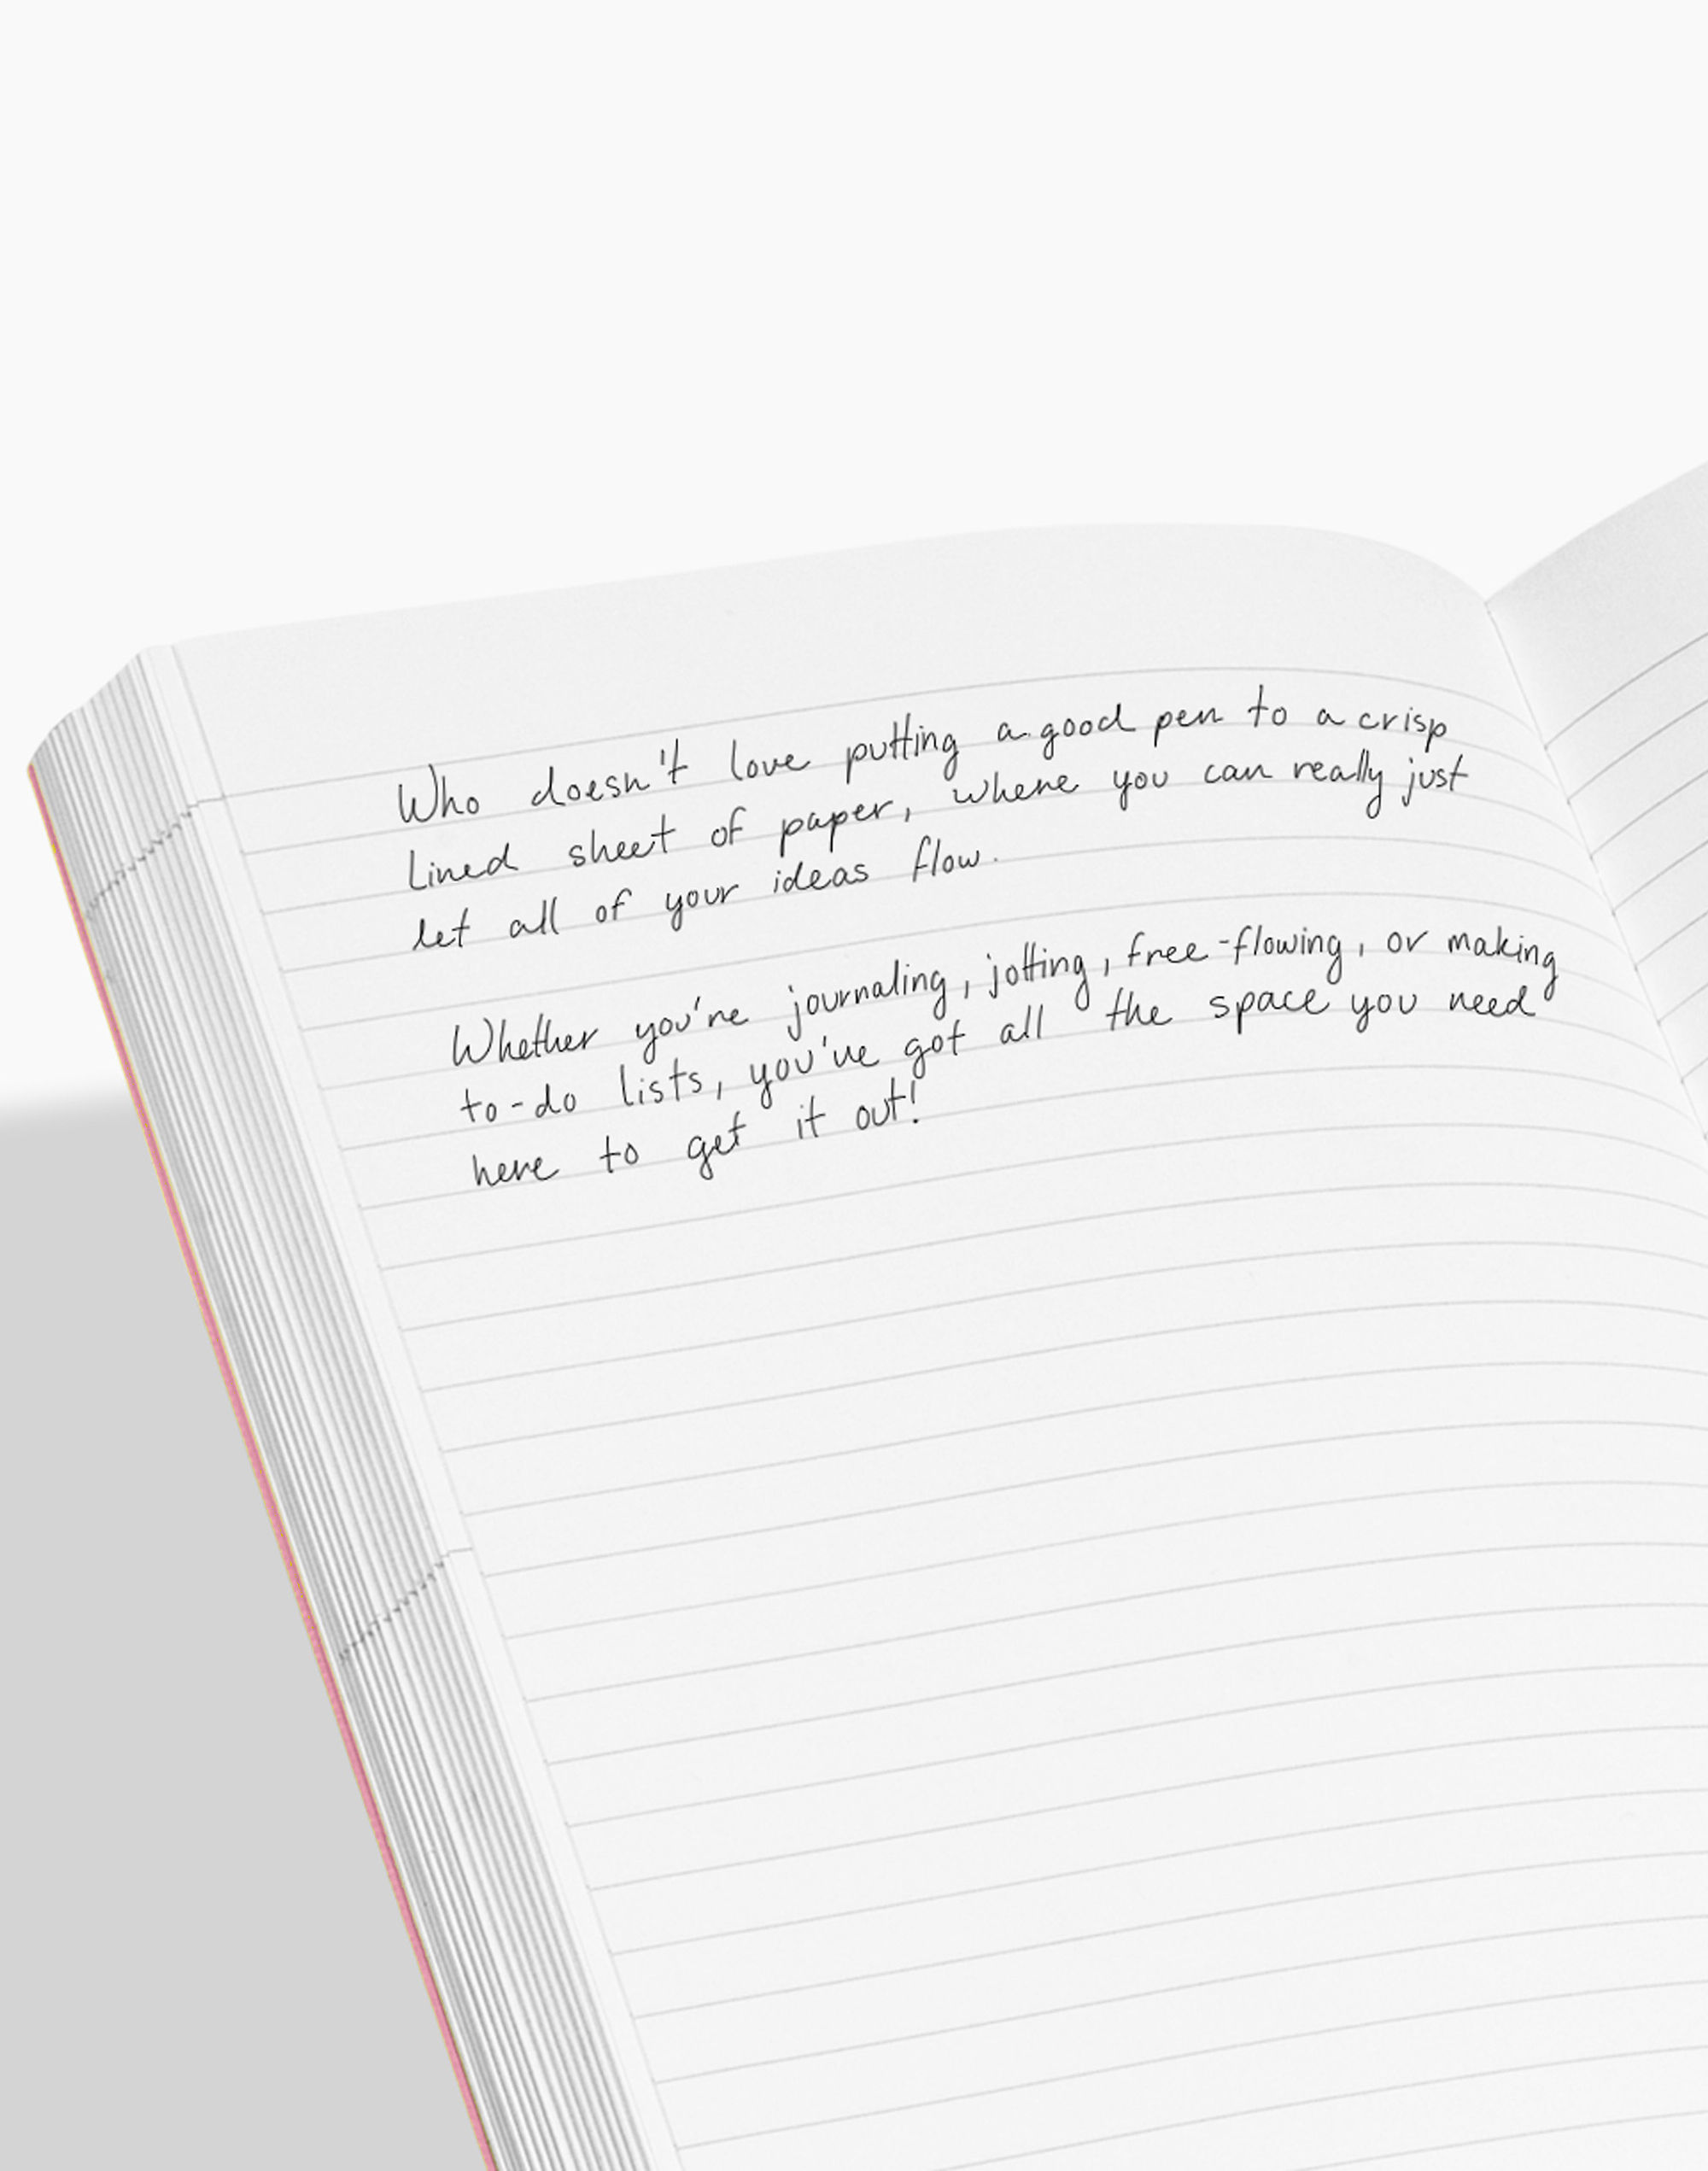 Who doesn't love putting a good pen to a crisp
lined sheet of paper, where you can really just
let all of your ideas flow.
Whether you're journaling, jotting, free-flowing, or making
to-do lists, you've got all the space you need
here to get it out!